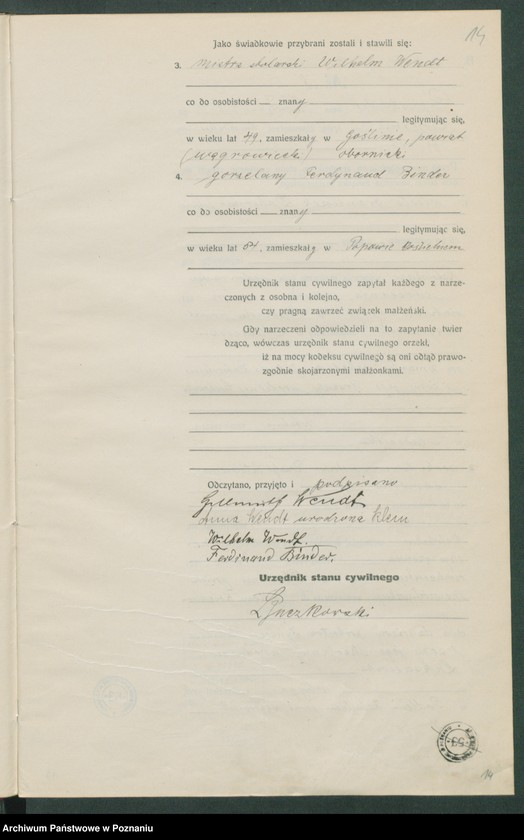 14
Jako świadkowie przybrani zostali i stawili się:
3. mistrz stolarski Wilhelm Wendt
co do osobistości znany
legitymując się,
w wieku lat 49, zamieszkały w Goślinie, powiat
(wągrowiecki) obornicki
4. gorzelany Ferdynand Binder
co do osobistości znany
legitymując się,
w wieku lat zamieszkały w Popowie
Urzędnik stanu cywilnego zapytał każdego z narze-
czonych z osobna i kolejno,
czy pragną zawrzeć związek małżeński.
Gdy narzeczeni odpowiedzieli na to zapytanie twier
dząco, wówczas urzędnik stanu cywilnego orzekł,
iż na mocy kodeksu cywilnego są oni odtąd prawo-
zgodnie skojarzonymi małżonkami.
Odczytano, przyjęto i podpisano
Hellmuth Wendt
Anna Wendt urodzona Klein
Wilhelm Wendt.
Ferdinand Binder.
Urzędnik stanu cywilnego
14
Archiwum Państwowe w Poznaniu